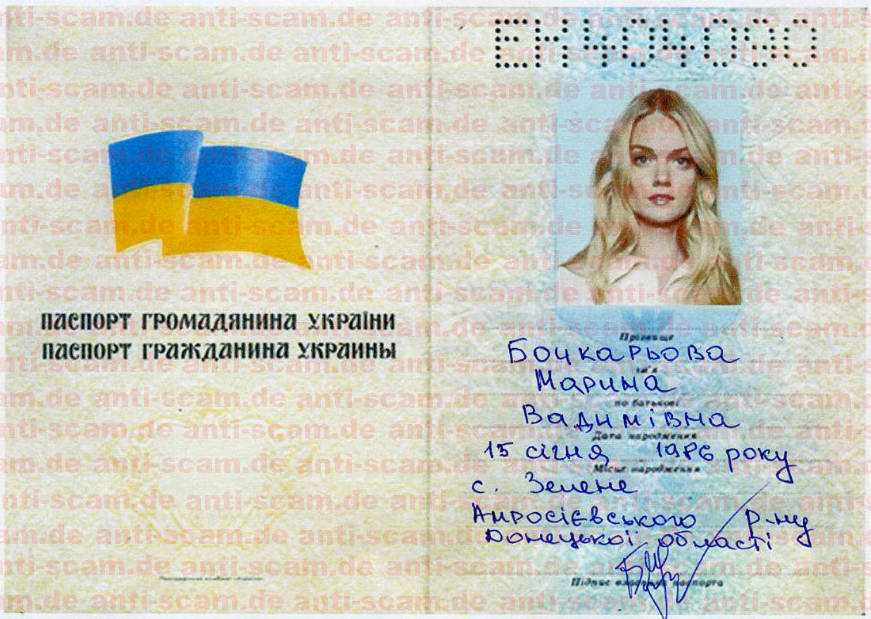 anti-scam.de
ПАСПОРТ ГРОМАДЯНИНА УКРАЇНИ
ПАСПОРТ ГРАЖДАНИНА УКРАИНЫ
Прізвище
Бочкарьова
ім'я
Марина
по батькові
Вадимівна
Дата народження
15 січня 1986 року
Місце народження
с. Зелене
Амросієвського р-ну
Донецької області
Підпис власника паспорта